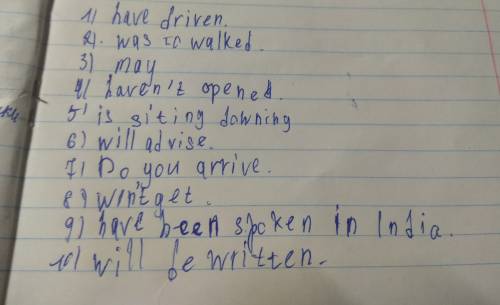 1) have driven.
2). was to walked.
3) may
4) haven't opened.
5) is siting dawning
6) will advise.
7) Do you arrive.
8) win't get.
9) have been spoken in India.
10) will be written.